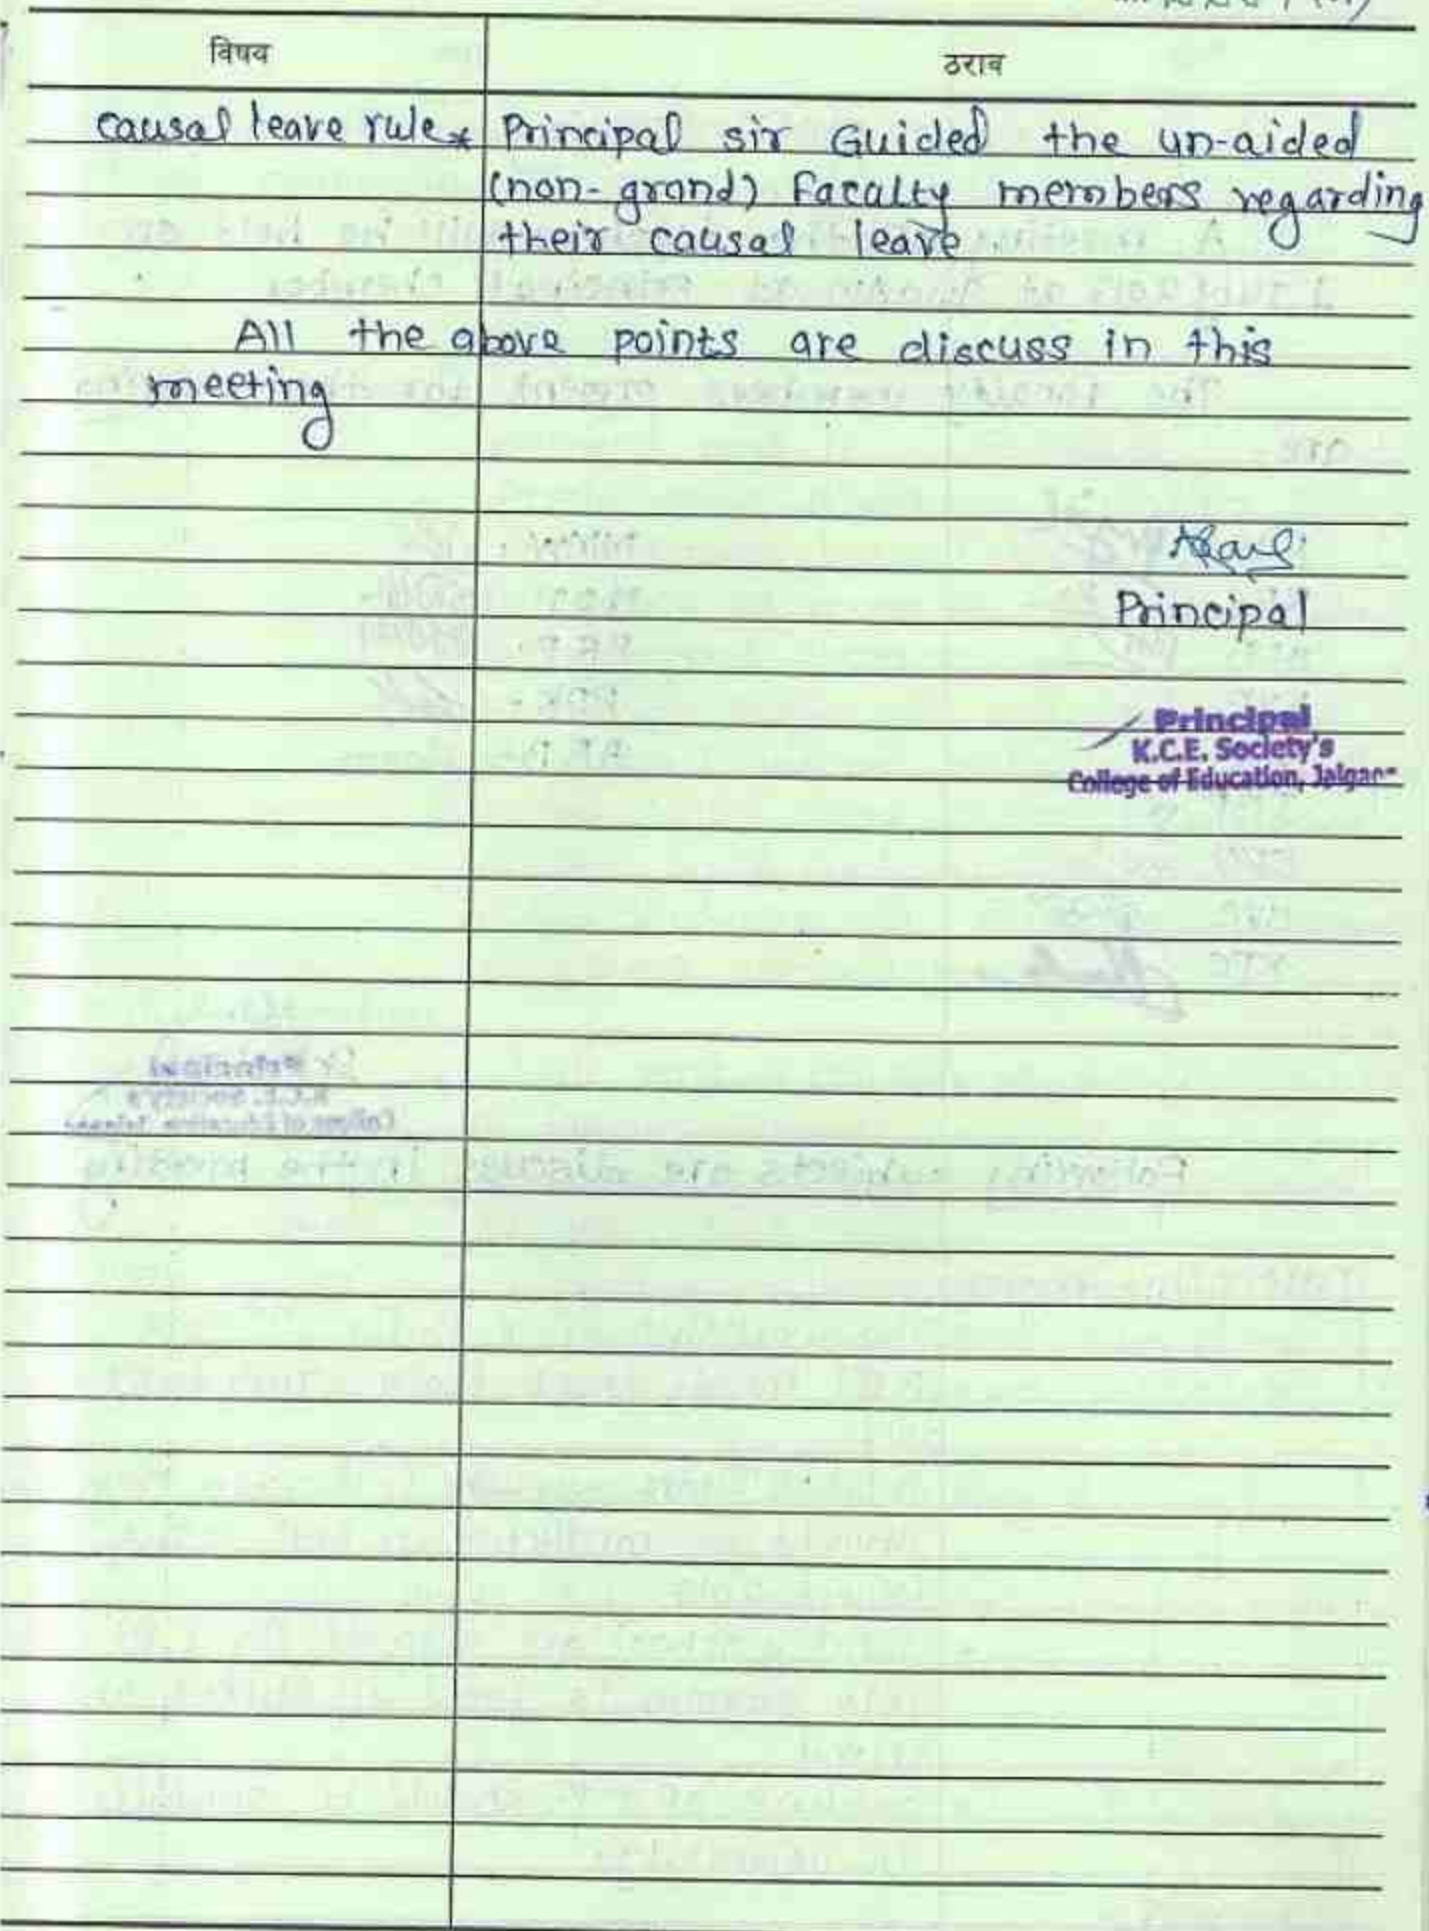 विषय ठराव
causal leave rule* Principal sir Guided the un-aided
(non-grand) Faculty members regarding
their causal leave.
All the above points are discuss in this
meeting
Principal
Principal
K.C.E. Society's
College of Education,